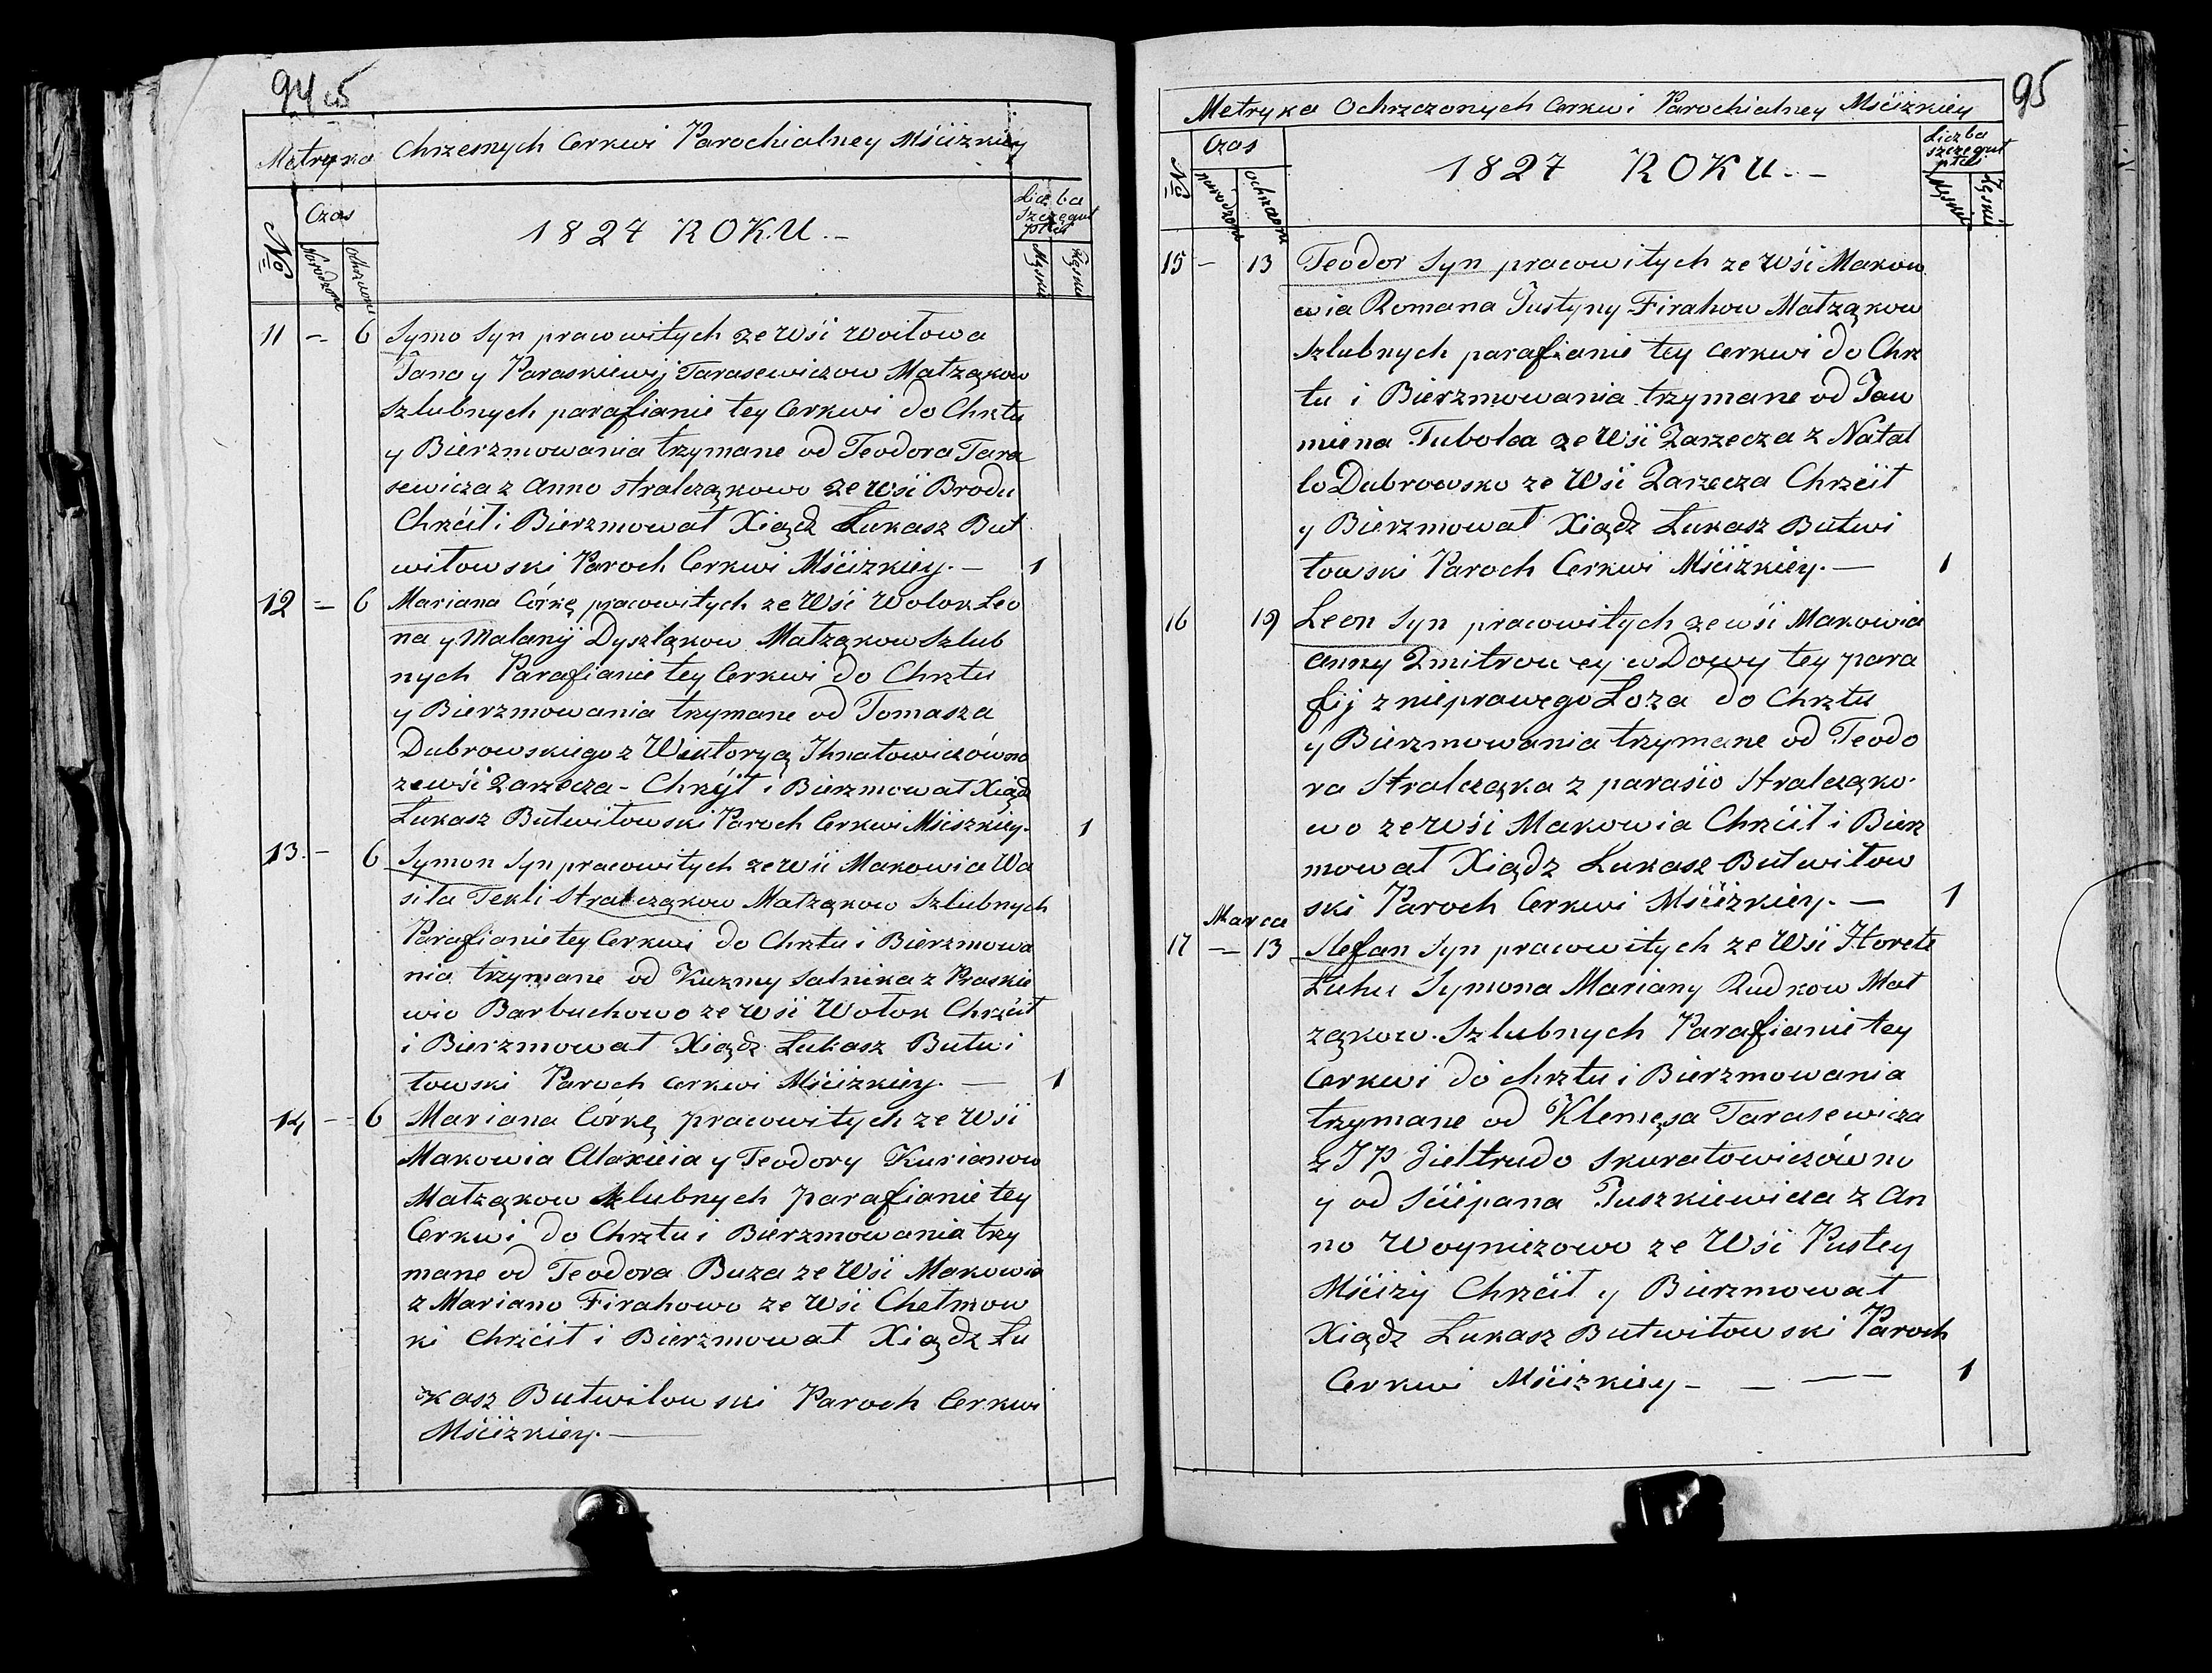 94
Metryka Chrzesnych Cerkwi Parochialney Mścizkiey
No Czas 1827 ROKU.- Liczba szczeguł płci
Narodzone Ochrzczone Męskie Żęskie
11 - 6 Symo Syn pracowitych ze Wśi Woitowa
Jana y Paraskiewij Tarasewiczow Małząkow
Szlubnych parafianie tey Cerkwi do Chrztu
y Bierzmowania trzymane od Teodora Tara
sewicza z Anno Stralcząkowo ze Wśi Brodu
Chrźcił i Bierzmował Xiądz Łukasz But
wiłowski Paroch Cerkwi Mścizkiey.- 1
12 = 6 Mariana Córkę pracowitych ze Wśi Wolok Leo
na y Malanij Dyszląkow Małząkow Szlub
nych Parafianie tey Cerkwi do Chrztu
y Bierzmowania trzymane od Tomasza
Dubrowskiego z Wiktoryą Ihnatowiczówno
ze wśi Zarzecza - Chrzył i Bierzmował Xiądz
Łukasz Butwiłowski Paroch Cerkwi Mściszkiey. 1
13. - 6 Symon Syn pracowitych ze Wśi Makowia Wa
sila Tekli Stralcząkow Małząkow Szlubnych
Parafianie tey Cerkwi do Chrztu i Bierzmowa
nia trzymane od Kuzmy Salnika z Praskie
wio Barbuchowo ze Wśi Wołok Chrźcił
i Bierzmował Xiądz Łukasz Butwi
łowski Paroch Cerkwi Mścizkiey. - 1
14 - - 6 Mariana Córkę pracowitych ze Wśi
Makowia Alaxieia y Teodory Kurianow
Małząkow Szlubnych parafianie tey
Cerkwi do Chrztu i Bierzmowania trzy
mane od Teodora Buza ze Wśi Makowia
z Mariano Firahowo ze Wśi Chełmow
ki Chrźcił i Bierzmował Xiądz Łu
kasz Butwiłowski Paroch Cerkwi
Mścizkiey. -
95
Metryka Ochrzczonych Cerkwi Parochialney Mścizkiey
No Czas 1827 ROKU.- Liczba szczeguł płci
narodzone ochrzczone Męskie Żęskie
15 - 13 Teodor Syn pracowitych ze Wśi Makow
wia Romana Justyny Firahow Małząkow
Szlubnych parafianie tey Cerkwi do Chrz
tu i Bierzmowania trzymane od Jaw
miena Tubolca ze Wśi Zarzecza z Natal
lo Dubrowsko ze Wśi Zarzecza Chrźcił
y Bierzmował Xiądz Łukasz Butwi
łowski Paroch Cerkwi Mścizkiey. - 1
16 19 Leon Syn pracowitych ze wśi Makowia
Anny Dmitrowey wDowy tey para
fij z nieprawego Łoza do Chrztu
y Bierzmowania trzymane od Teodo
ra Stralcząka z parasio Stralcząko
wo ze Wśi Makowia Chrźcił i Bierz
mował Xiądz Łukasz Butwiłow
ski Paroch Cerkwi Mścizkiey. - 1
Marca
17 - 13 Stefan Syn pracowitych ze Wśi Horełe
Łuhu Symona Mariany Rudkow Mał
ząkow. Szlubnych Parafianie tey
Cerkwi do chrztu i Bierzmowania
trzymane od Klemęsa Tarasewicza
z JP Gieltrudo Skuratowiczówno
y od Sciepana Juszkiewicza z An
no Woyniczowo ze Wśi Pustey
Mściży Chrźcił y Bierzmował
Xiądz Łukasz Butwiłowski Paroch
Cerkwi Mścizkiey - - - 1